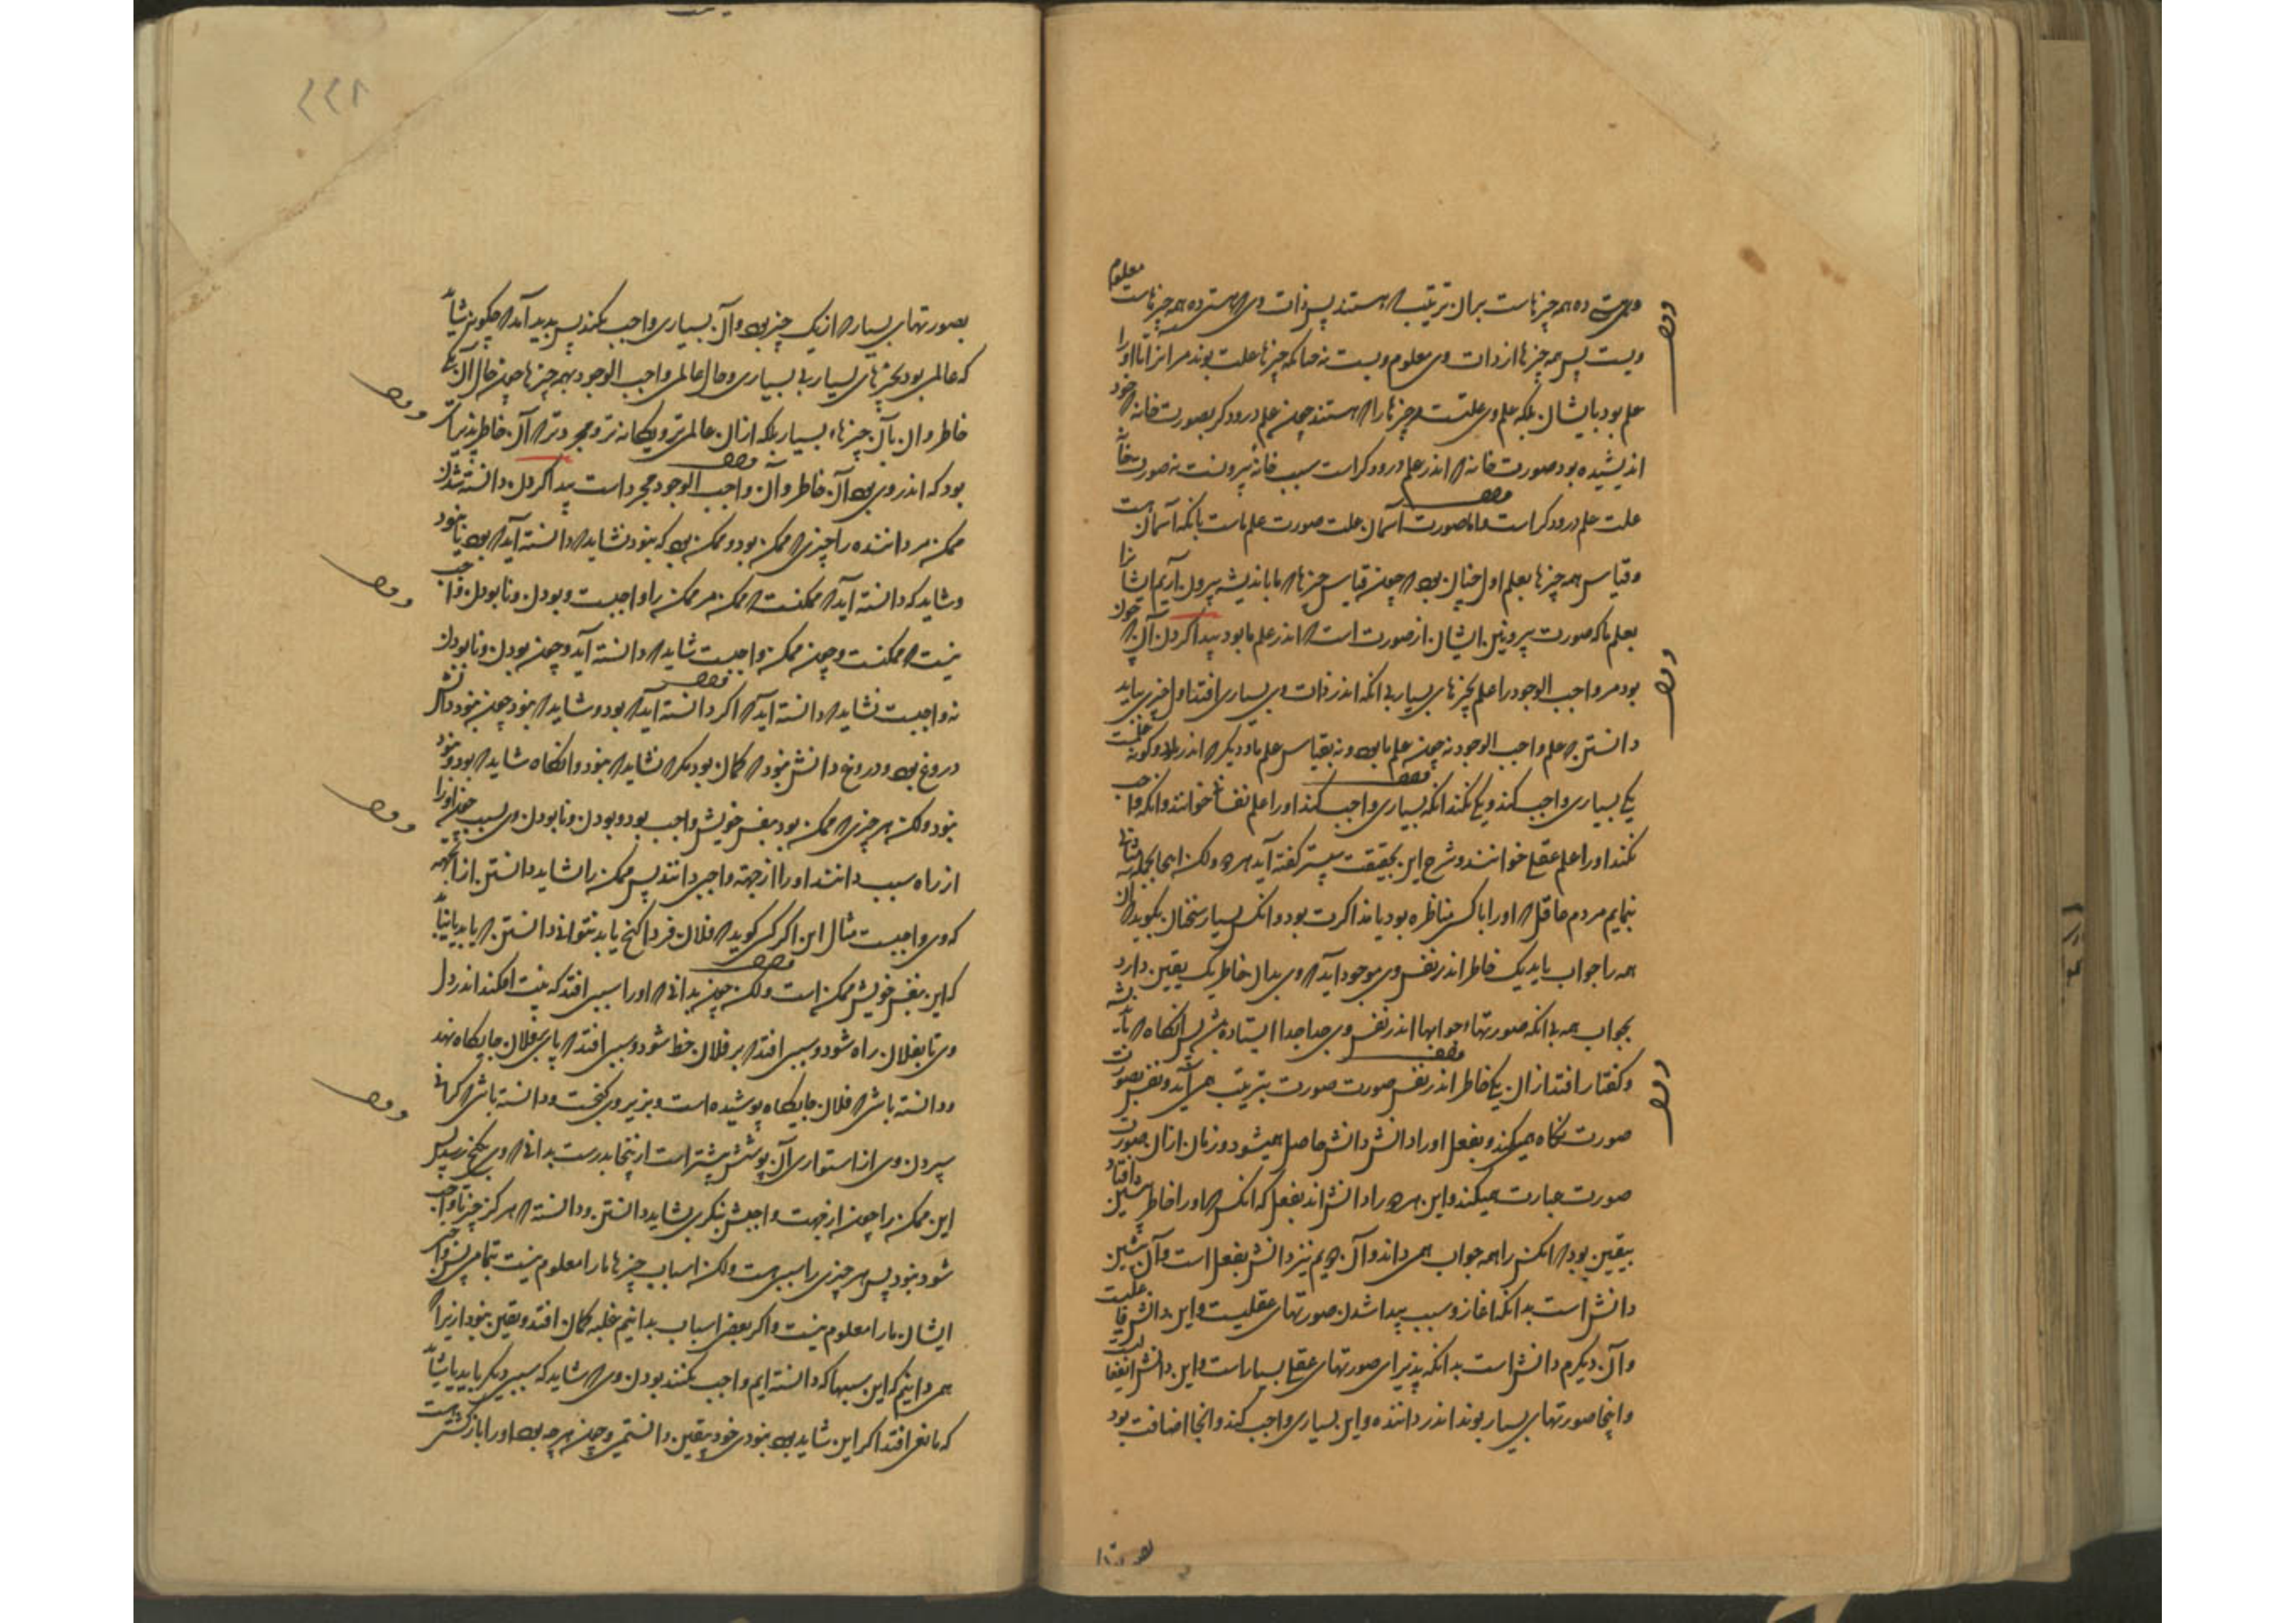 وهستی ده همه چیزهاست بران ترتیب که هستند پس ذات وی که هستی ده همه چیزهاست معلوم
ویست پس همه چیزها از ذات وی معلوم ویست نه چنانکه چیزها علت بوند مر انرا تا او را
علم بود بایشان بلکه علم وی علتست مر چیزها را که هستند چون علم درودکر بصورت خانه که خود
اندیشیده بود صورت خانه که اندر علم درودکر است سبب خانه بیرونست نه صورت خانه
علت علم درودکر است واما صورت آسمان علت صورت علم ماست بانکه آسمان هست
وقیاس همه چیزها بعلم اول چنان بود که چون قیاس چیزها که ما باندیشه بیرون آریم ایشانرا
بعلم ما که صورت بیرونین ایشان از صورت است که اندر علم ما بود پیدا کردن آن که چون
بود مر واجب الوجود را علم بچیزهای بسیار بی انکه اندر ذات وی بسیاری افتد اول چیزی بباید
دانستن که علم واجب الوجود نه چون علم ما بود ونه بقیاس علم ما ودیکر که اندر ما دو کونه علمست
یکی بسیاری واجب کند ویکی نکند انکه بسیاری واجب کند او را علم نفسانی خوانند وانکه واجب
نکند او را علم عقلی خوانند وشرح این بحقیقت سپستر کفته آید ولکن اینجا بجمله مثالی
بنمایم مردم عاقل که او را با کسی مناظره بود یا مذاکرت بود وانکس بسیار سخنان بکوید که آن
همه را جواب باید یک خاطر اندر نفس وی موجود آید که وی بدان خاطر یک یقین دارد
بجواب همه بی انکه صورتها جوابها اندر نفس وی جدا جدا ایستاده باشد پس انکاه که باندیشه
وکفتار افتد از ان یکی خاطر اندر نفس صورت صورت بترتیب همی آید ونفس بصورت
صورت نکاه همیکند وبفعل او را دانش دانش حاصل همیشود وزبان ازان صورت
صورت عبارت همیکند واین هر دو را دانش اند بفعل که انکس که او را خاطر پیشین افتاد
بیقین بود که انکس را همه جواب همی داند وآن دویم نیز دانش بفعل است وآن پیشین
دانش است بدانکه اغاز وسبب پیدا شدن صورتهای عقلیست واین دانش فاعلیست
وآن دیکرم دانش است بدانکه پذیرای صورتهای عقلی بسیار است واین دانش انفعالیست
واینجا صورتهای بسیار بوند اندر داننده واین بسیاری واجب کند وانجا اضافت بود
بصورتهای بسیار که از یک چیز بود وآن بسیاری واجب نکند پس پدید آمد که چکونه شاید
که عالمی بود بچیزهای بسیار بی بسیاری وحال عالمی واجب الوجود بهمه چیزها چون حال آن یکی
خاطر وان بآن چیزهاء بسیار بلکه از ان عالمتر ویکانه تر ومجردتر که آن خاطر را پذیرائی
بود که اندر وی بود آن خاطر وان واجب الوجود مجرد است پیدا کردن دانسته شدن
ممکن مر داننده را چیزی که ممکن بود وممکن بود که نبود نشاید که دانسته آید که بود یا نبود
وشاید که دانسته آید که ممکنست که ممکن مر ممکن را واجبست وبودن ونابودن واجب
نیست که ممکنست وچون ممکن واجبست شاید که دانسته آید وچون بودن ونابودن
نه واجبست نشاید که دانسته آید که اکر دانسته آید که بود وشاید که نبود چون نبود دانش
دروغ بود ودروغ دانش نبود که کمان بود مکر که نشاید که نبود وانکاه شاید که بود ونبود
نبود ولکن هر چیزی که ممکن بود بنفس خویش واجب بود وبودن ونابودن وی بسبب چون او را
از راه سبب دانند او را از جهت واجبی دانند پس ممکن را شاید دانستن از آنجهه
که وی واجبست مثال این اکر کسی کوید که فلان فردا کنج یابد نتوانی دانستن که یابد یا نیابد
که این بنفس خویش ممکن است ولکن چون بدانی که او را سببی افتد که نیت افکند اندر دل
وی تا بفلان راه شود وسببی افتد که بر فلان خط شود وسببی افتد که پای بر فلان جایکاه نهد
ودانسته باشی که فلان جایکاه پوشیده است وبزیر وی کنجست ودانسته باشی که کرانی
سپردن وی از استواری آن پوشش بیشتر است از اینجا بدرست بدانی که وی بکنج رسد پس
این ممکن را چون از جهت واجبیش بنکری بشاید دانستن ودانسته که هرکز چیز تا واجب
شود نبود پس هر چیزی را سببی هست ولکن اسباب چیزها ما را معلوم نیست بتمامی پس واجبی
ایشان ما را معلوم نیست واکر بعضی اسباب بدانیم غلبه کمان افتد ویقین نبود ازیرا که
همی دانیم که این سببها که دانسته ایم واجب نکنند بودن وی که شاید که سببی دیکر باید یا شاید
که مانعی افتد اکر این شاید بود نبودی خود بیقین دانستمی وچون هر چه بود او را بازکشتست